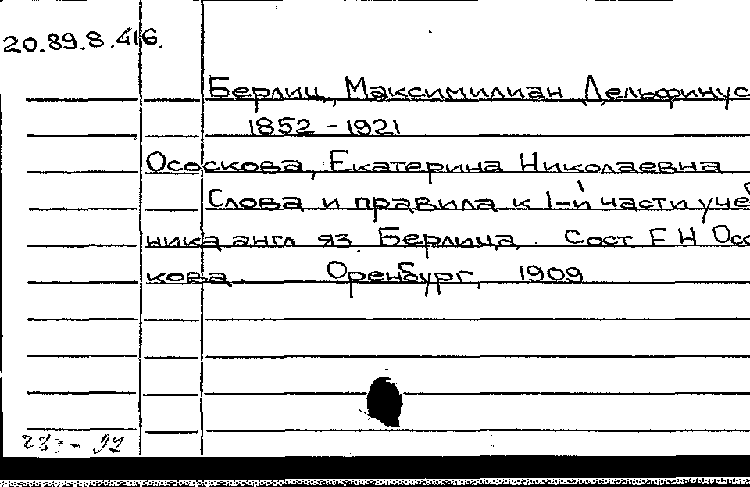 20.89.8.416.
Берлиц, Максимилиан Дельфинус
1852-1921
Ососкова, Екатерина Николаевна
Слова и правила к 1-й части учеб
ника англ яз. Берлица. Сост Е Н Осо
кова. Оренбург, 1909